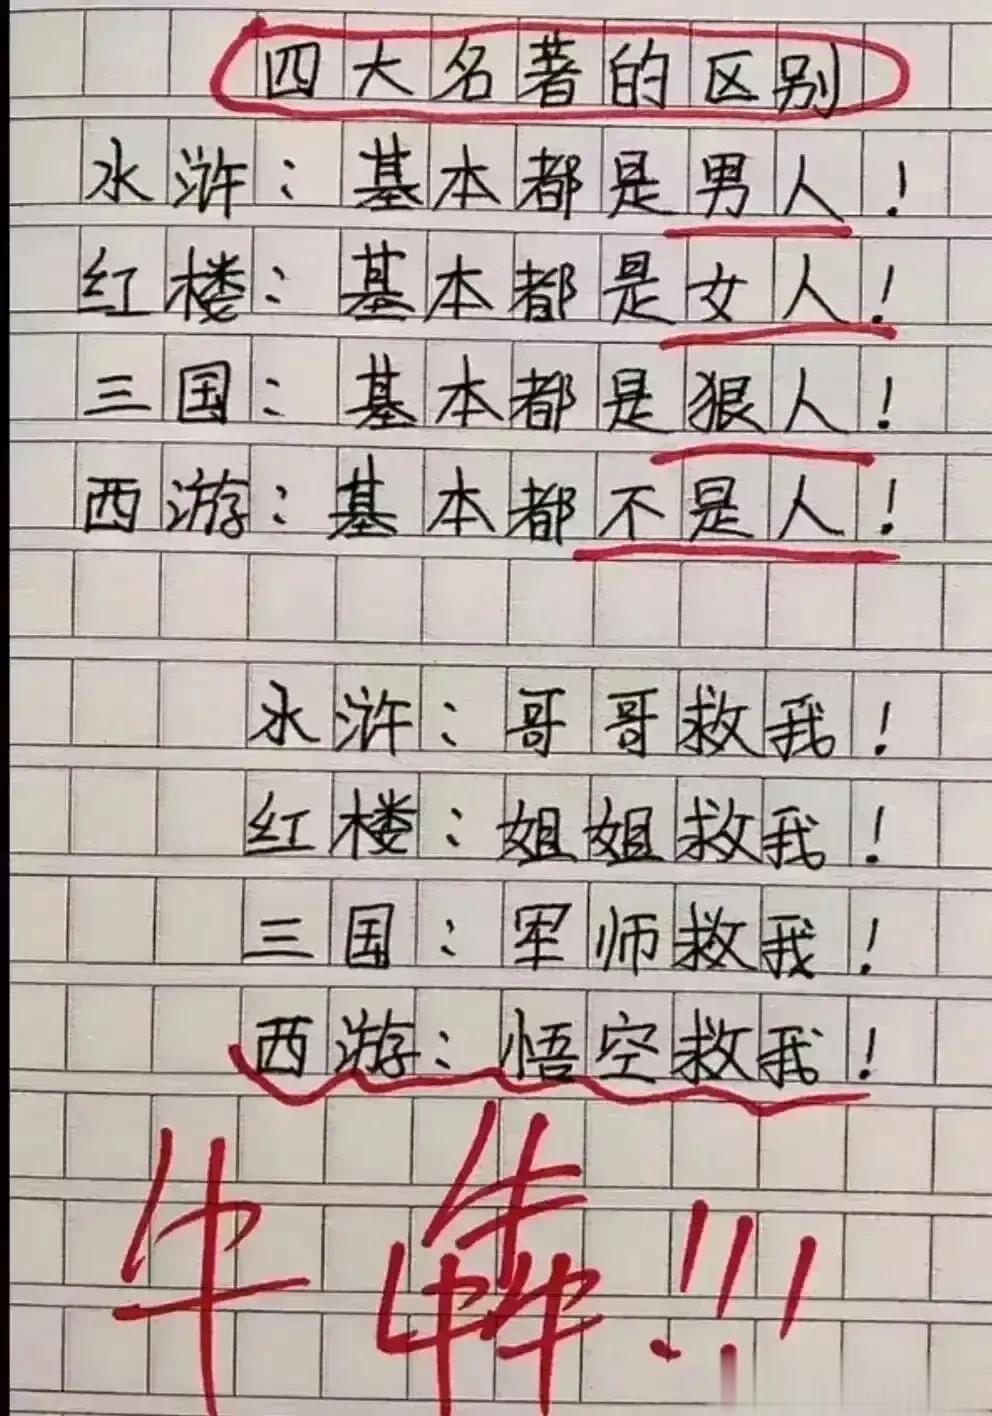 四大名著的区别
水浒：基本都是男人！
红楼：基本都是女人！
三国：基本都是狠人！
西游：基本都不是人！
水浒：哥哥救我！
红楼：姐姐救我！
三国：军师救我！
西游：悟空救我！
牛犇!!!